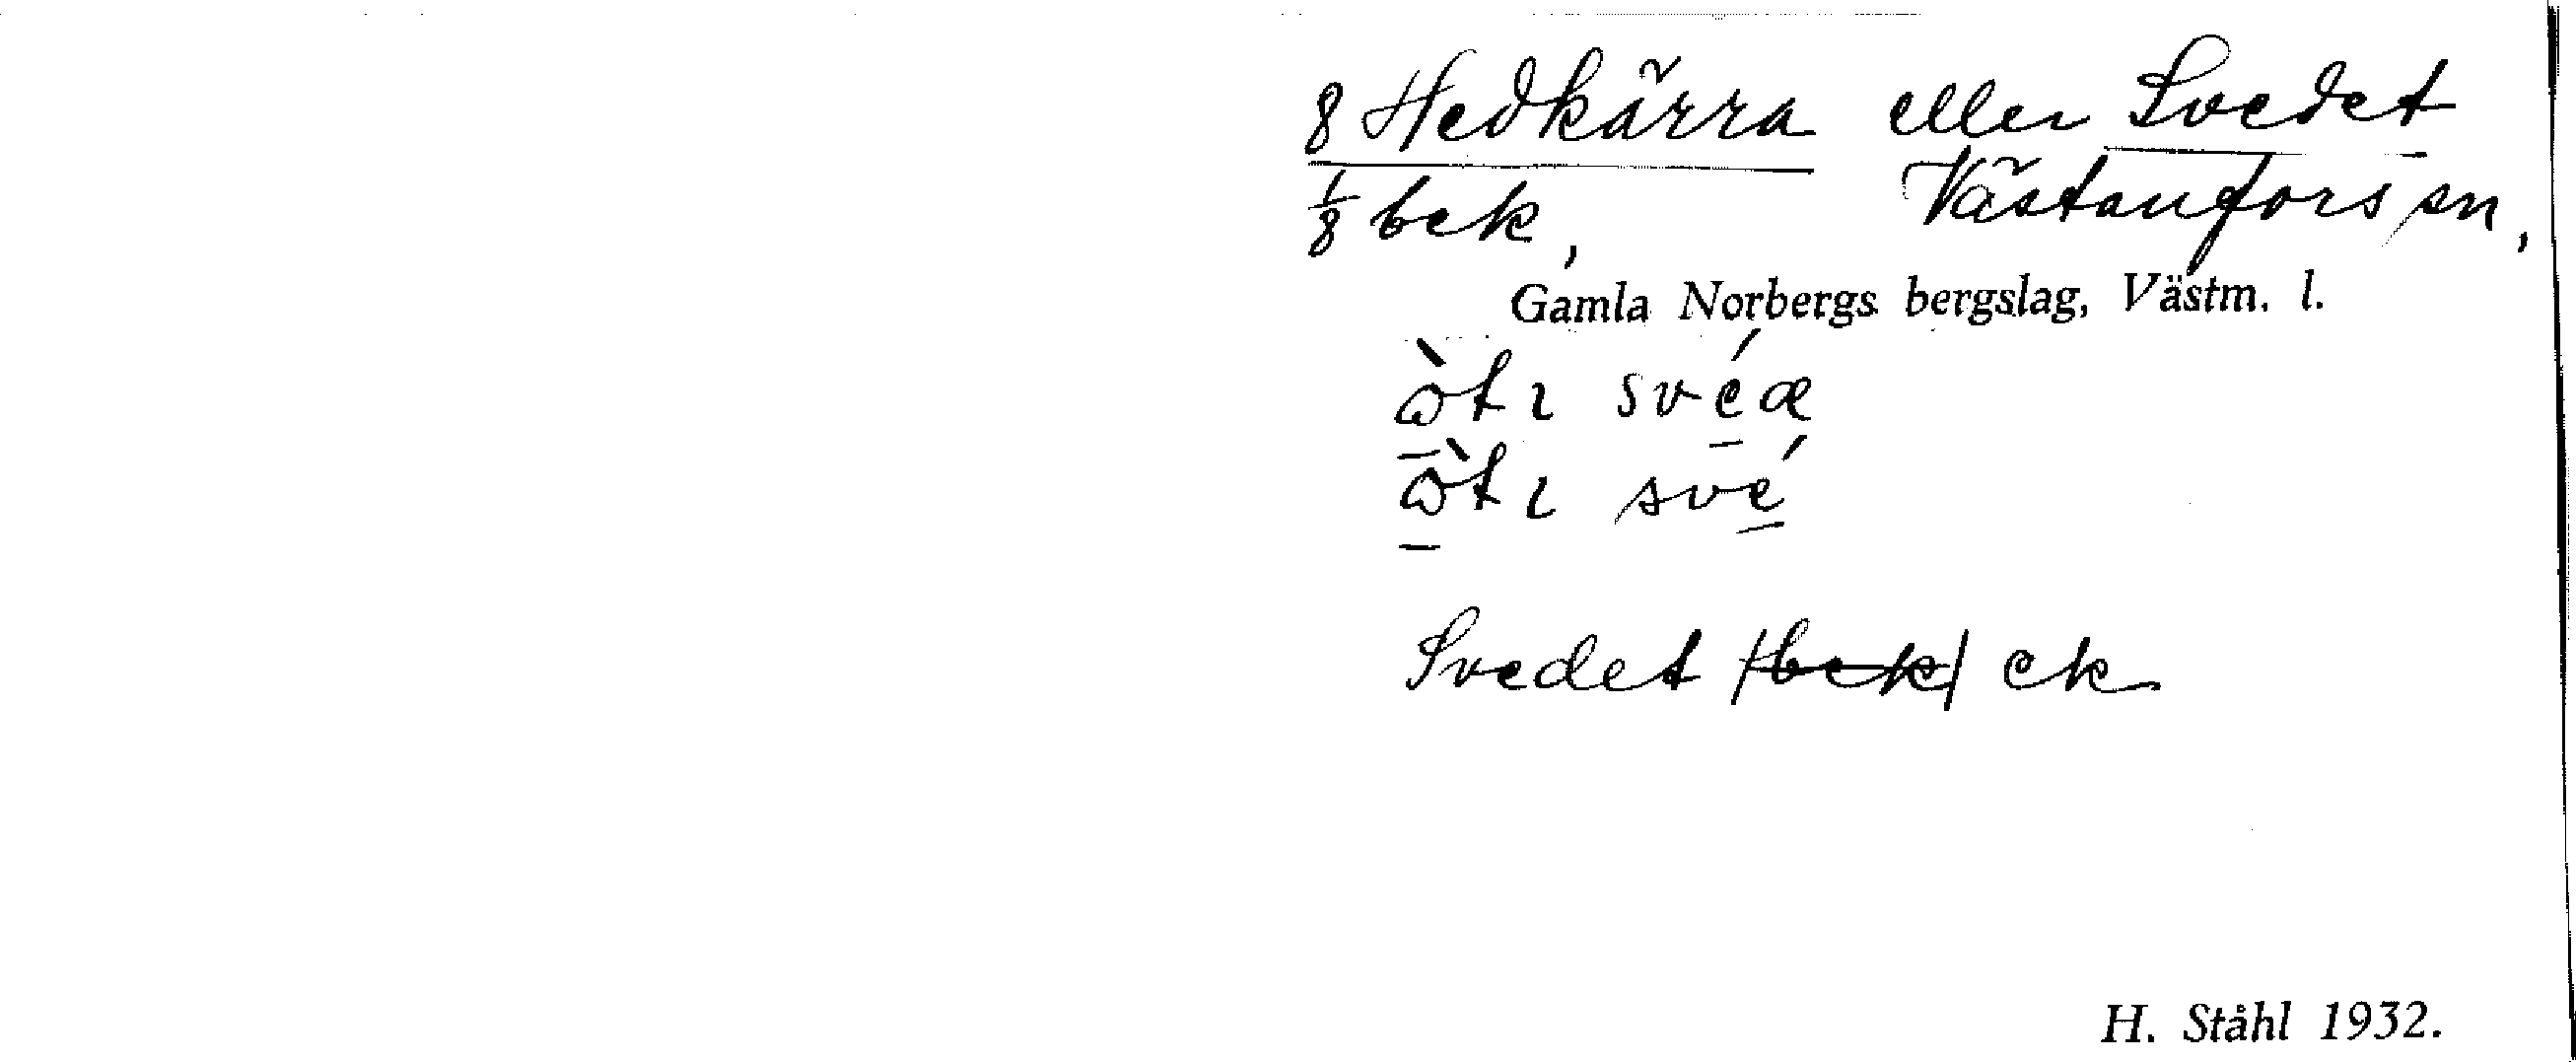 8 Hedkärra eller Svedet
1/8 bek, Västanfors sn,
Gamla Norbergs bergslag, Västm. l.
ὼtɩ svéæ
ὼtɩ své
Svedet /bek/ ek
H. Ståhl 1932.